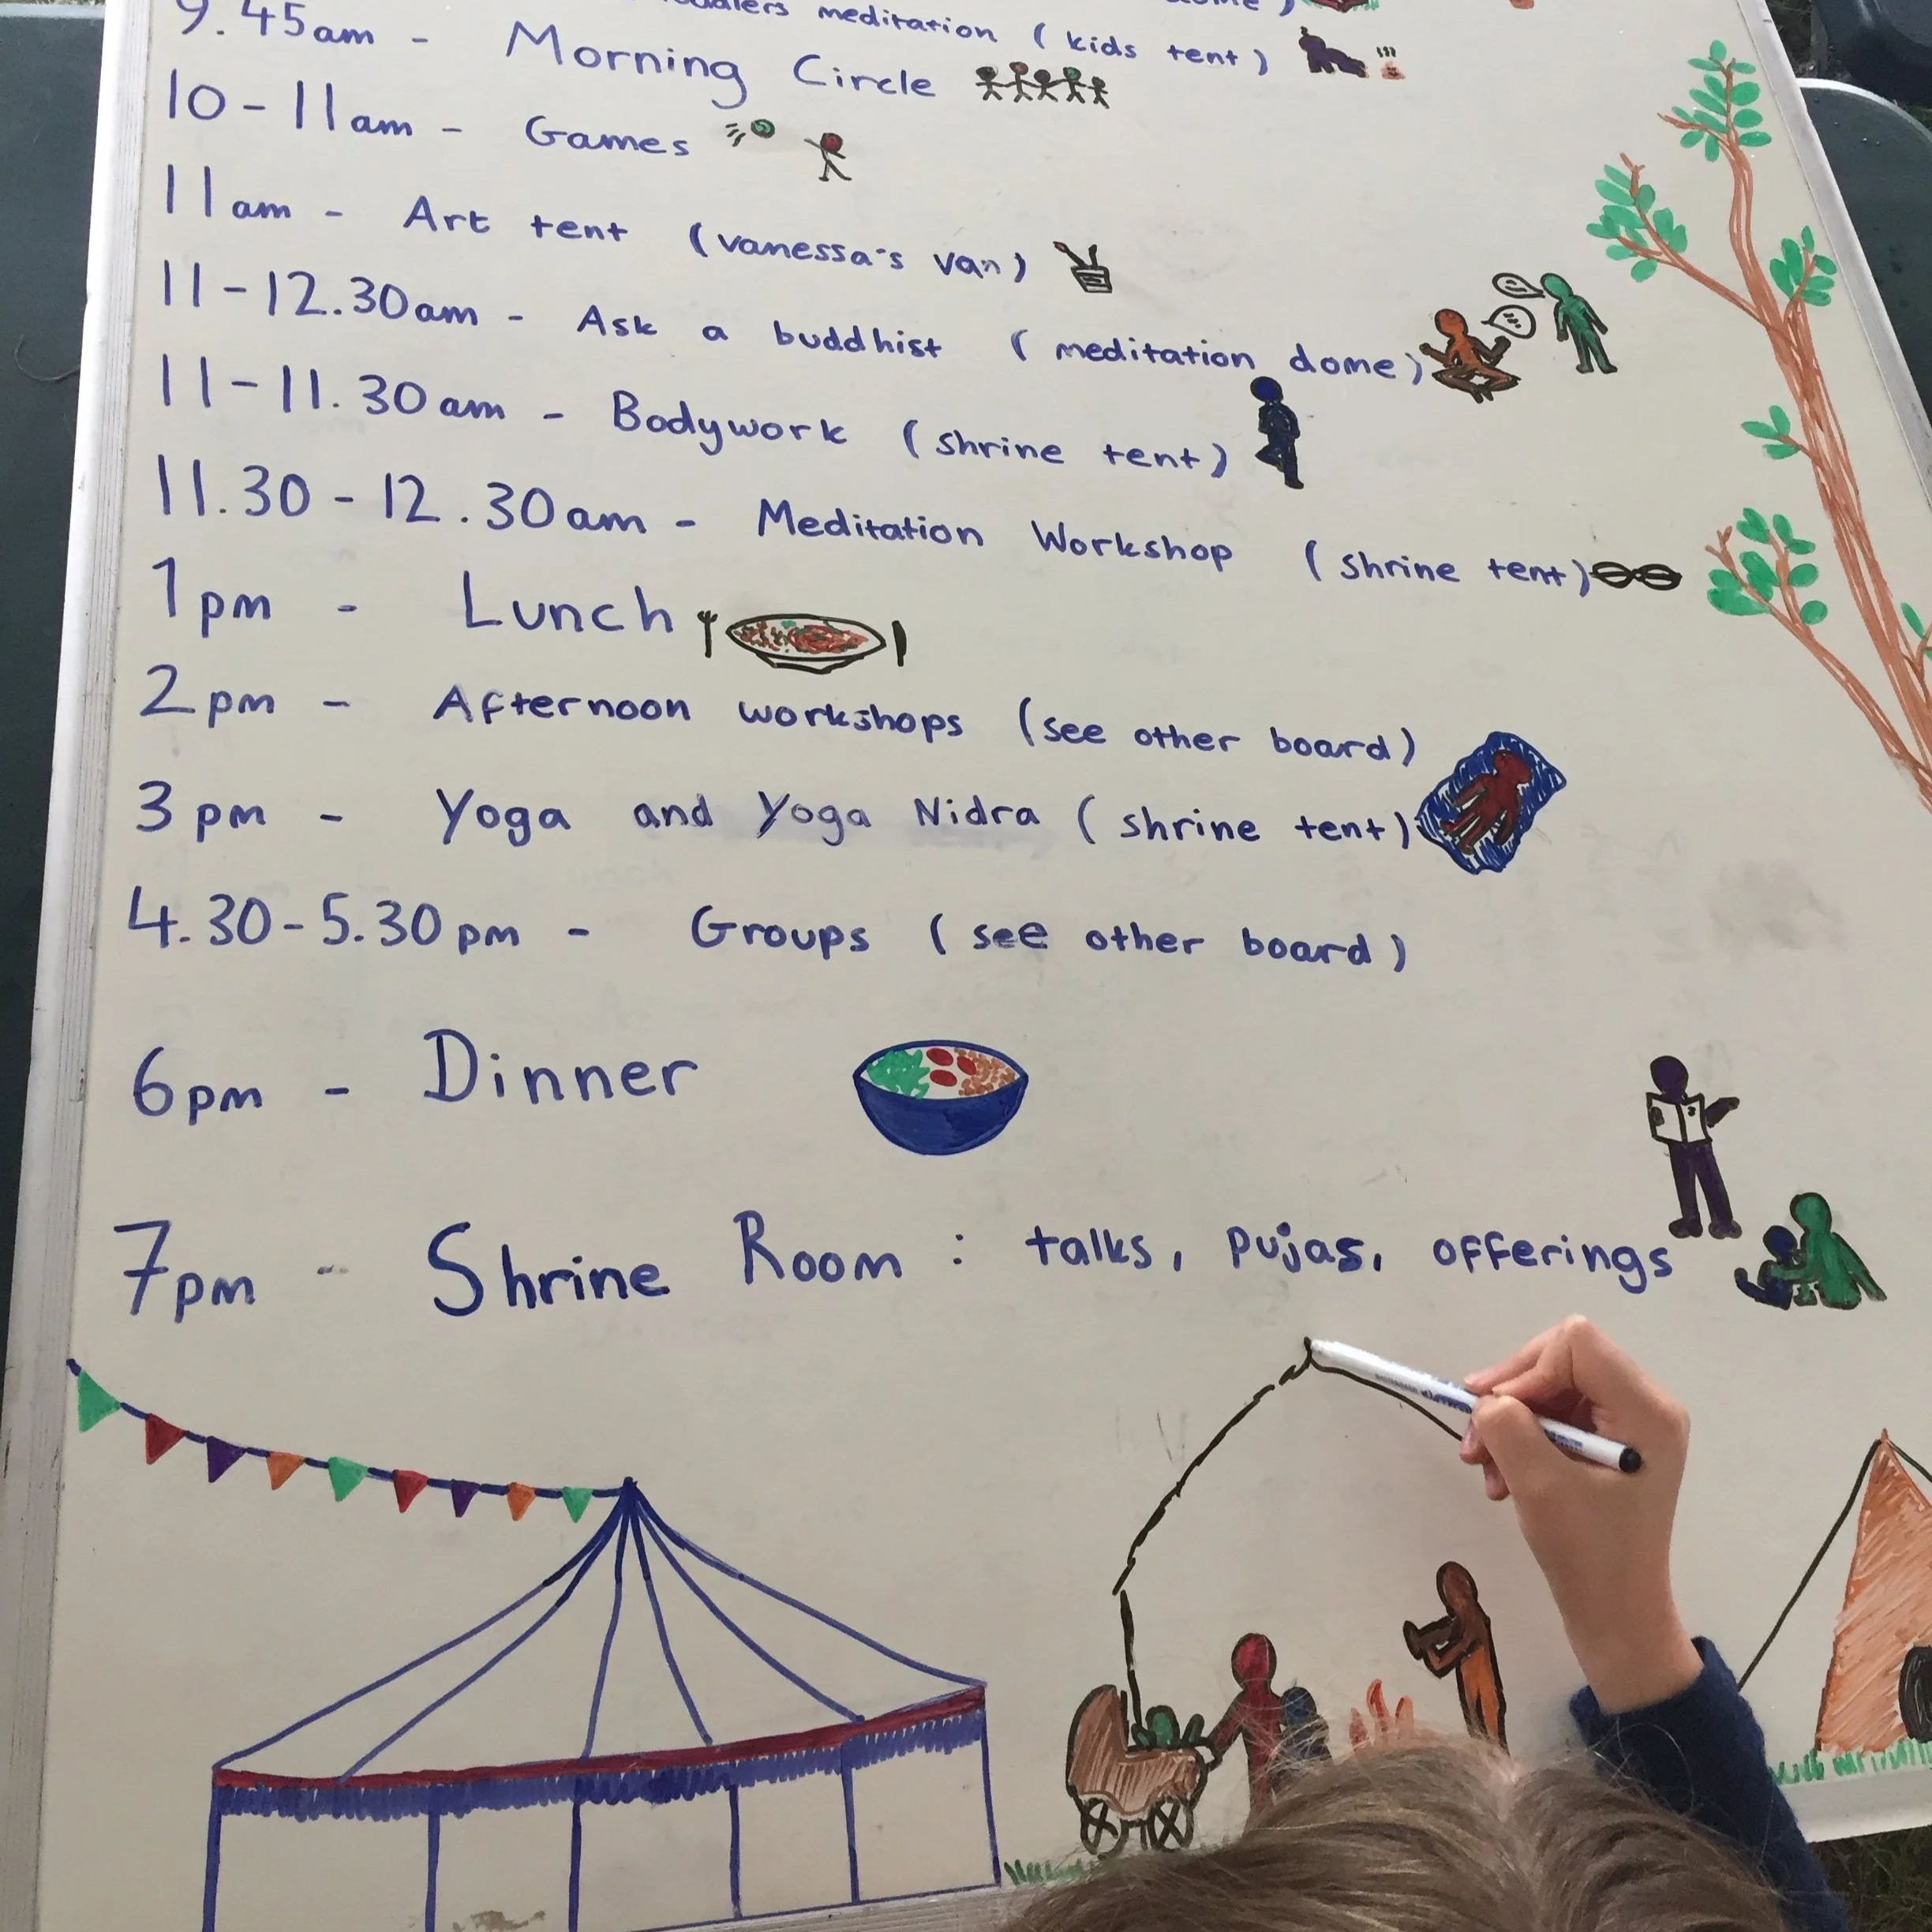 meditation (kids tent)
9.45am - Morning Circle
10-11am - Games
11am - Art tent (vanessa's van)
11-12.30am - Ask a buddhist (meditation dome)
11-11.30am - Bodywork (shrine tent)
11.30-12.30am - Meditation Workshop (shrine tent)
1pm - Lunch
2pm - Afternoon workshops (see other board)
3pm - Yoga and Yoga Nidra (shrine tent)
4.30-5.30pm - Groups (see other board)
6pm - Dinner
7pm - Shrine Room : talks, pujas, offerings